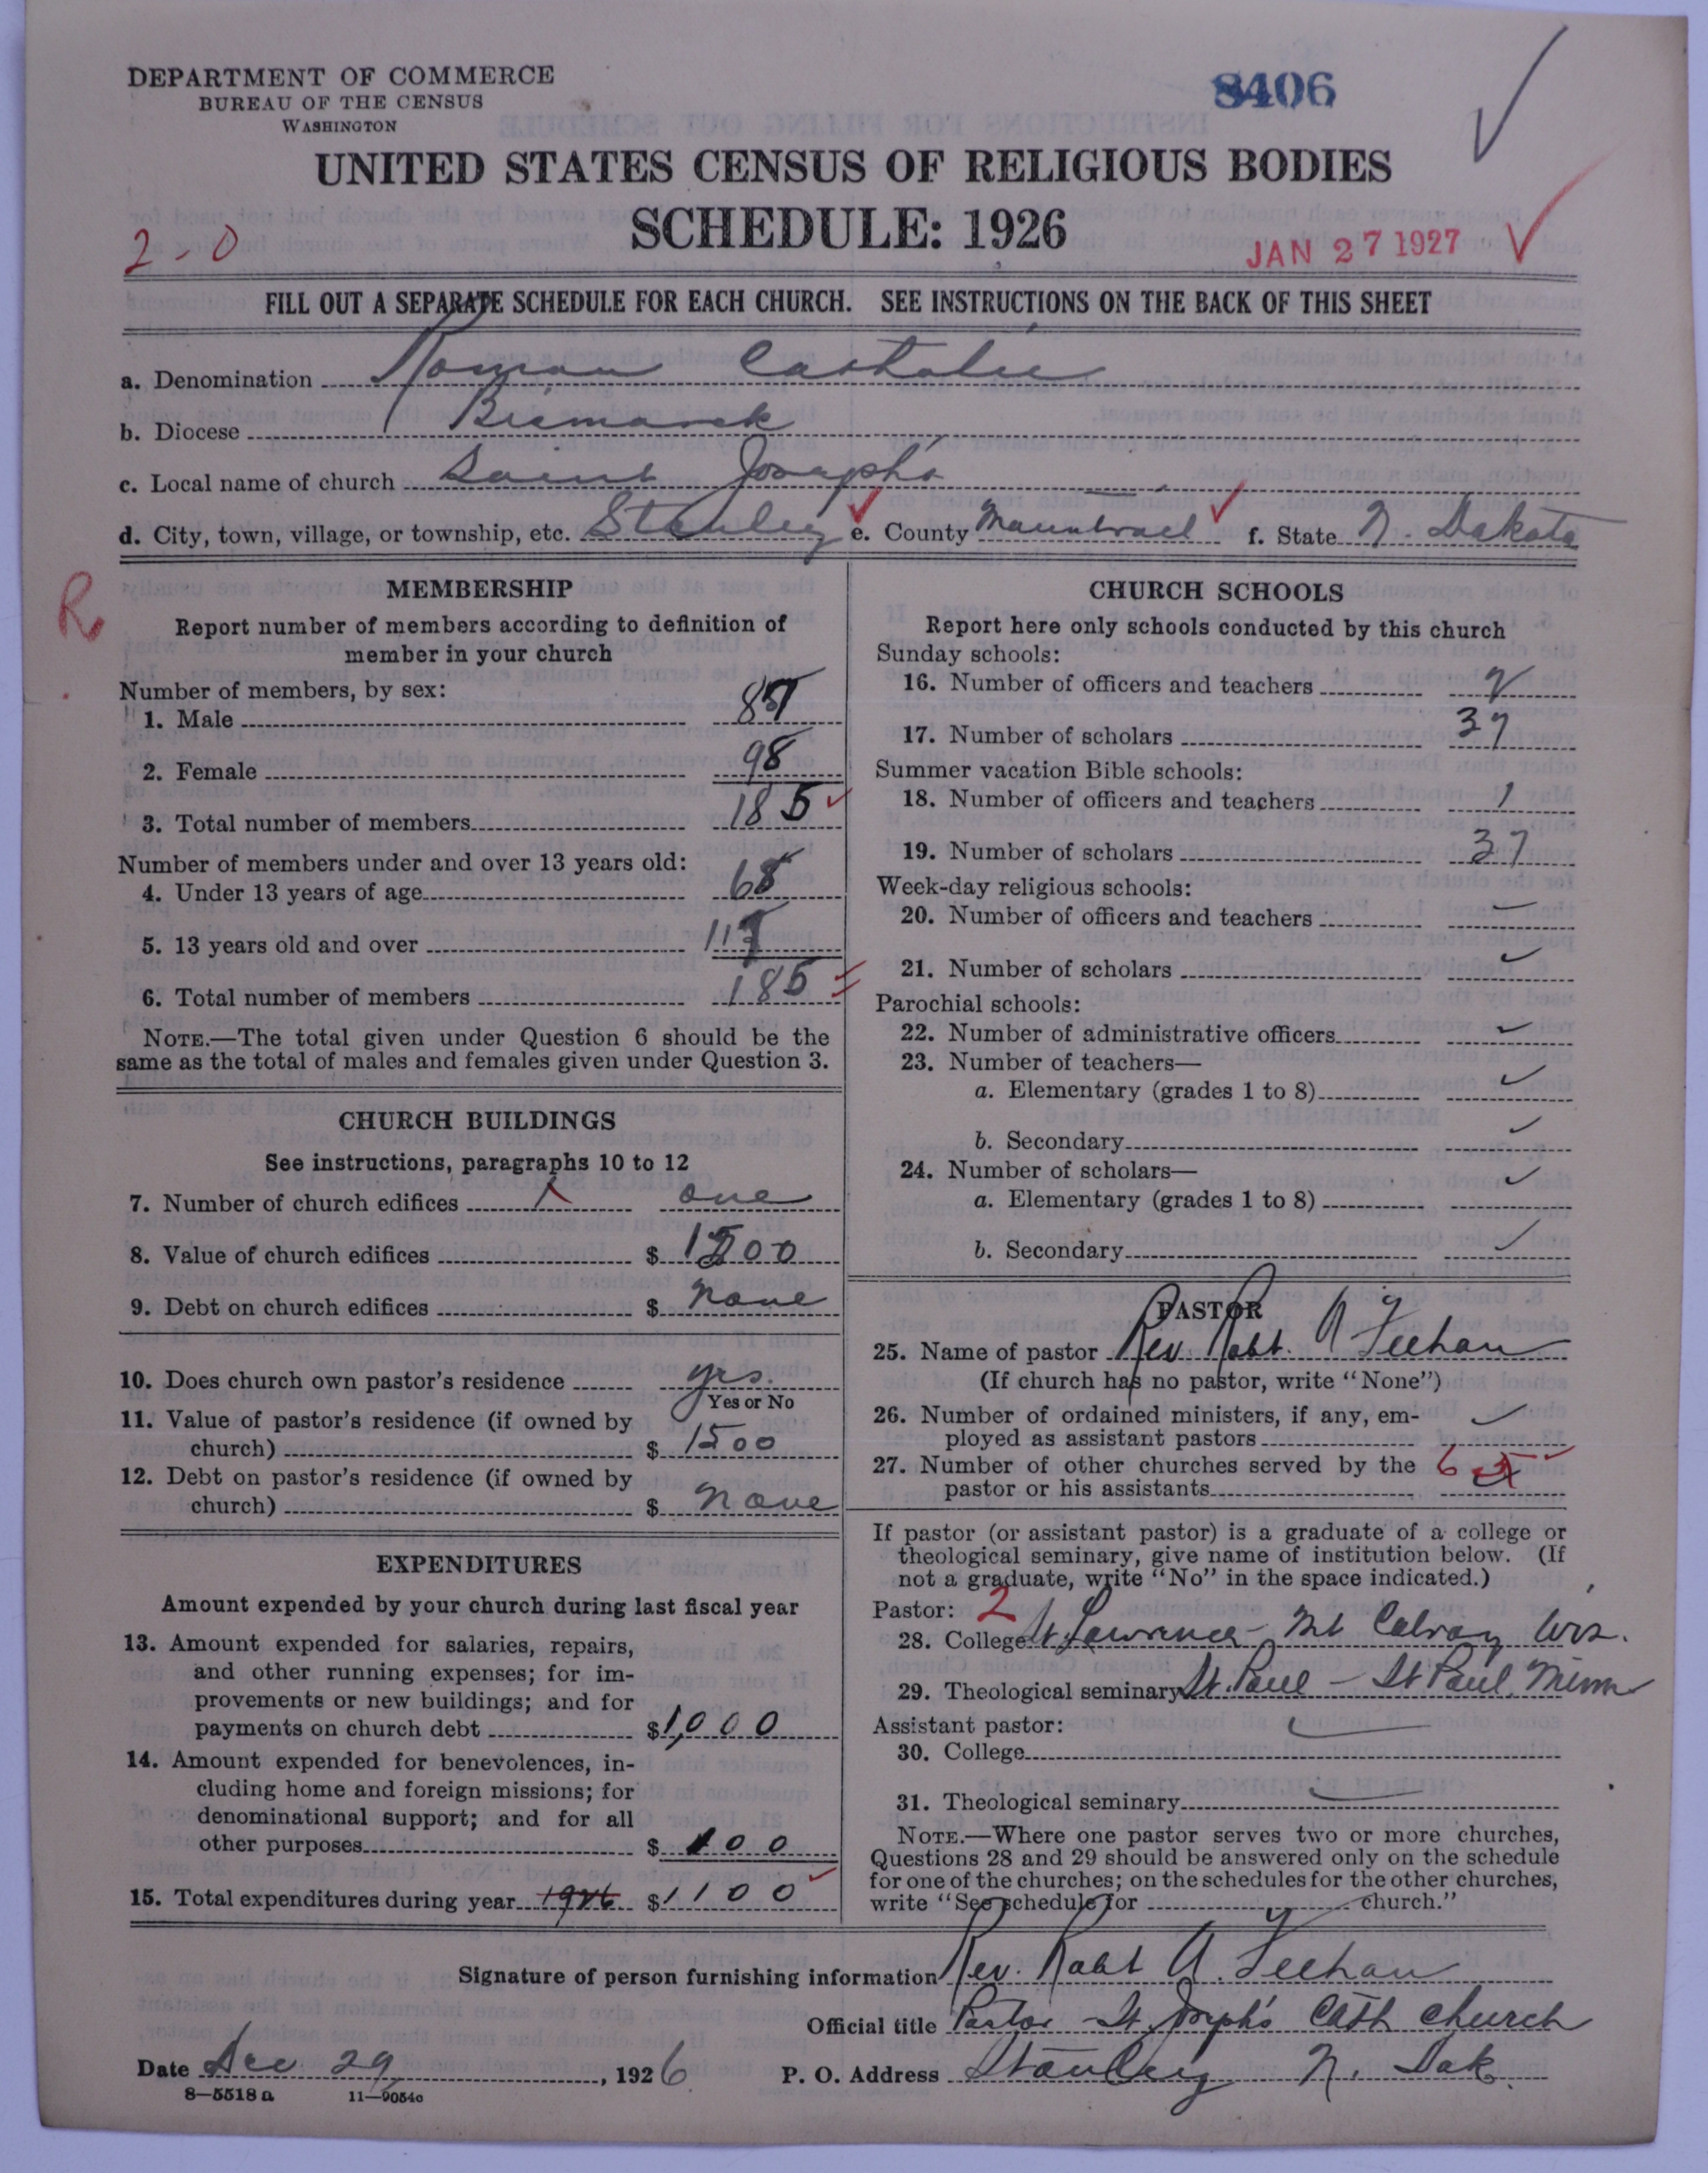 DEPARTMENT OF COMMERCE
BUREAU OF THE CENSUS
WASHINGTON
8406
UNITED STATES CENSUS OF RELIGIOUS BODIES
SCHEDULE: 1926
2-0
JAN 27 1927
FILL OUT A SEPARATE SCHEDULE FOR EACH CHURCH. SEE INSTRUCTIONS ON THE BACK OF THIS SHEET
a. Denomination Roman Catholic
b. Diocese Bismarck
c. Local name of church Saint Joseph's
d. City, town, village, or township, etc. Stanley e. County Mountrail f. State N. Dakota
R
MEMBERSHIP
Report number of members according to definition of
member in your church
Number of members, by sex:
1. Male 87
2. Female 98
3. Total number of members 185
Number of members under and over 13 years old:
4. Under 13 years of age 68
5. 13 years old and over 117
6. Total number of members 185
NOTE.—The total given under Question 6 should be the
same as the total of males and females given under Question 3.
CHURCH BUILDINGS
See instructions, paragraphs 10 to 12
7. Number of church edifices 1 one
8. Value of church edifices $ 1500
9. Debt on church edifices $ none
10. Does church own pastor's residence yes.
Yes or No
11. Value of pastor's residence (if owned by
church) $ 1500
12. Debt on pastor's residence (if owned by
church) $ none
EXPENDITURES
Amount expended by your church during last fiscal year
13. Amount expended for salaries, repairs,
and other running expenses; for im-
provements or new buildings; and for
payments on church debt $1,000
14. Amount expended for benevolences, in-
cluding home and foreign missions; for
denominational support; and for all
other purposes $ 100
15. Total expenditures during year 1926 $1100
CHURCH SCHOOLS
Report here only schools conducted by this church
Sunday schools:
16. Number of officers and teachers 2
17. Number of scholars 37
Summer vacation Bible schools:
18. Number of officers and teachers 1
19. Number of scholars 37
Week-day religious schools:
20. Number of officers and teachers
21. Number of scholars
Parochial schools:
22. Number of administrative officers
23. Number of teachers—
a. Elementary (grades 1 to 8)
b. Secondary
24. Number of scholars—
a. Elementary (grades 1 to 8)
b. Secondary
PASTOR
25. Name of pastor Rev. Robt. A Feehan
(If church has no pastor, write "None")
26. Number of ordained ministers, if any, em-
ployed as assistant pastors
27. Number of other churches served by the 6
pastor or his assistants
If pastor (or assistant pastor) is a graduate of a college or
theological seminary, give name of institution below. (If
not a graduate, write "No" in the space indicated.)
Pastor: 2
28. College St Lawrence - Mt Calvary Wis.
29. Theological seminary St. Paul - St Paul, Minn
Assistant pastor:
30. College
31. Theological seminary
NOTE.—Where one pastor serves two or more churches,
Questions 28 and 29 should be answered only on the schedule
for one of the churches; on the schedules for the other churches,
write "See schedule for church."
Signature of person furnishing information Rev. Robt A. Feehan
Official title Pastor - St Joseph's Cath Church
Date Dec 29, 1926 P. O. Address Stanley N. Dak.
8—5518 a 11—9054c